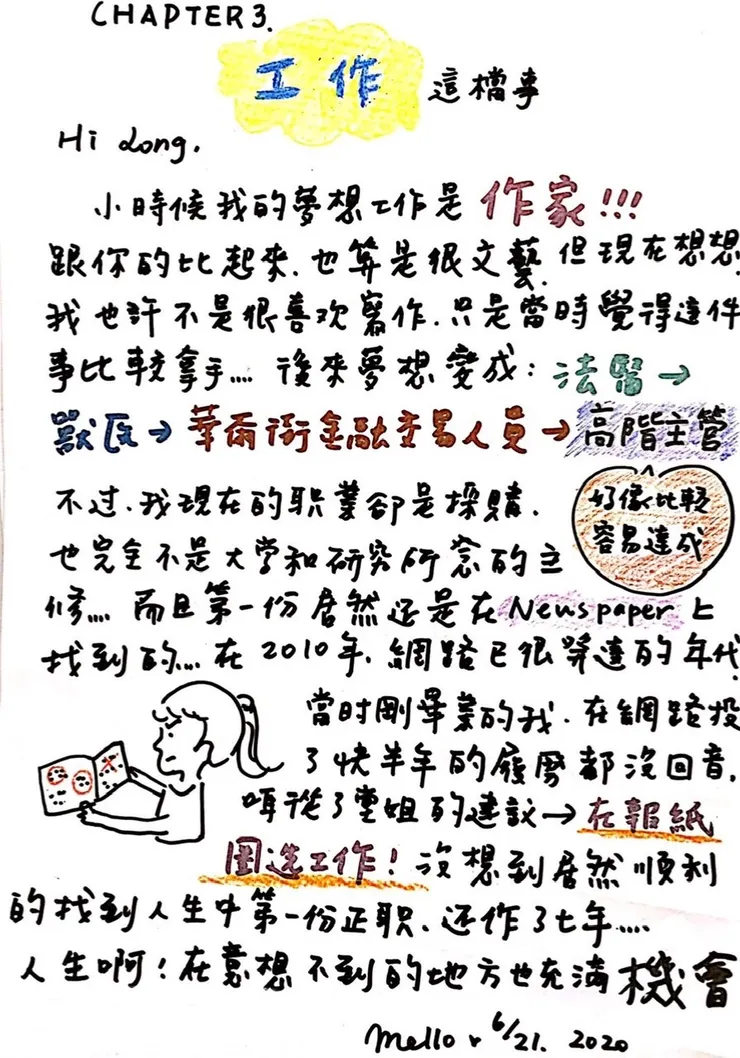 CHAPTER 3.
工作 這檔事
Hi Long.
小時候我的夢想工作是 作家!!!
跟你的比起來、也算是很文藝、但現在想想
我也許不是很喜欢寫作、只是當時覺得這件
事比較拿手.... 後來夢想變成：法醫→
獸医→華爾街金融交易人員→高階主管
好像比較
容易達成
不过、我現在的职業卻是採購.
也完全不是大学和研究所念的主
修.... 而且第一份居然还是在Newspaper上
找到的.... 在2010年、網路已很發達的年代、
當时剛畢業的我、在網路投
了快半年的履歷都沒回音,
听從了堂姐的建議→在報紙
圈选工作！沒想到居然順利
的找到人生中第一份正职、还作了七年....
人生啊！在意想不到的地方也充滿機會
Mello. 6/21. 2020